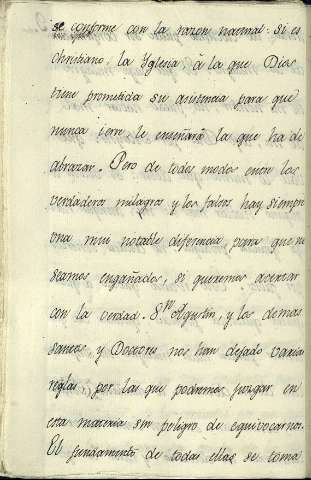 se conforme con la razon natural: si es
christiano, la Yglesia, á la que Dios
tiene prometida su asistencia para que
nunca ierre, le enseñará la que ha de
abrazar. Pero de todos modos entre los
verdaderos milagros y los falsos hay siempre
una mui notable diferencia, para que no
seamos engañados, si queremos acertar
con la verdad. S.n Agustin, y los demas
santos, y Doctores nos han dejado varias
reglas, por las que podremos juzgar en
esta materia sin peligro de equivocarnos.
El fundamento de todas ellas se toma